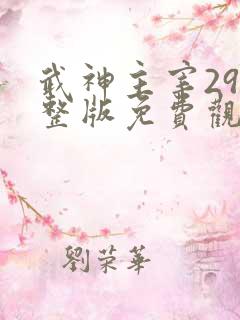 武神主宰29
整版免費觀
劉荣華